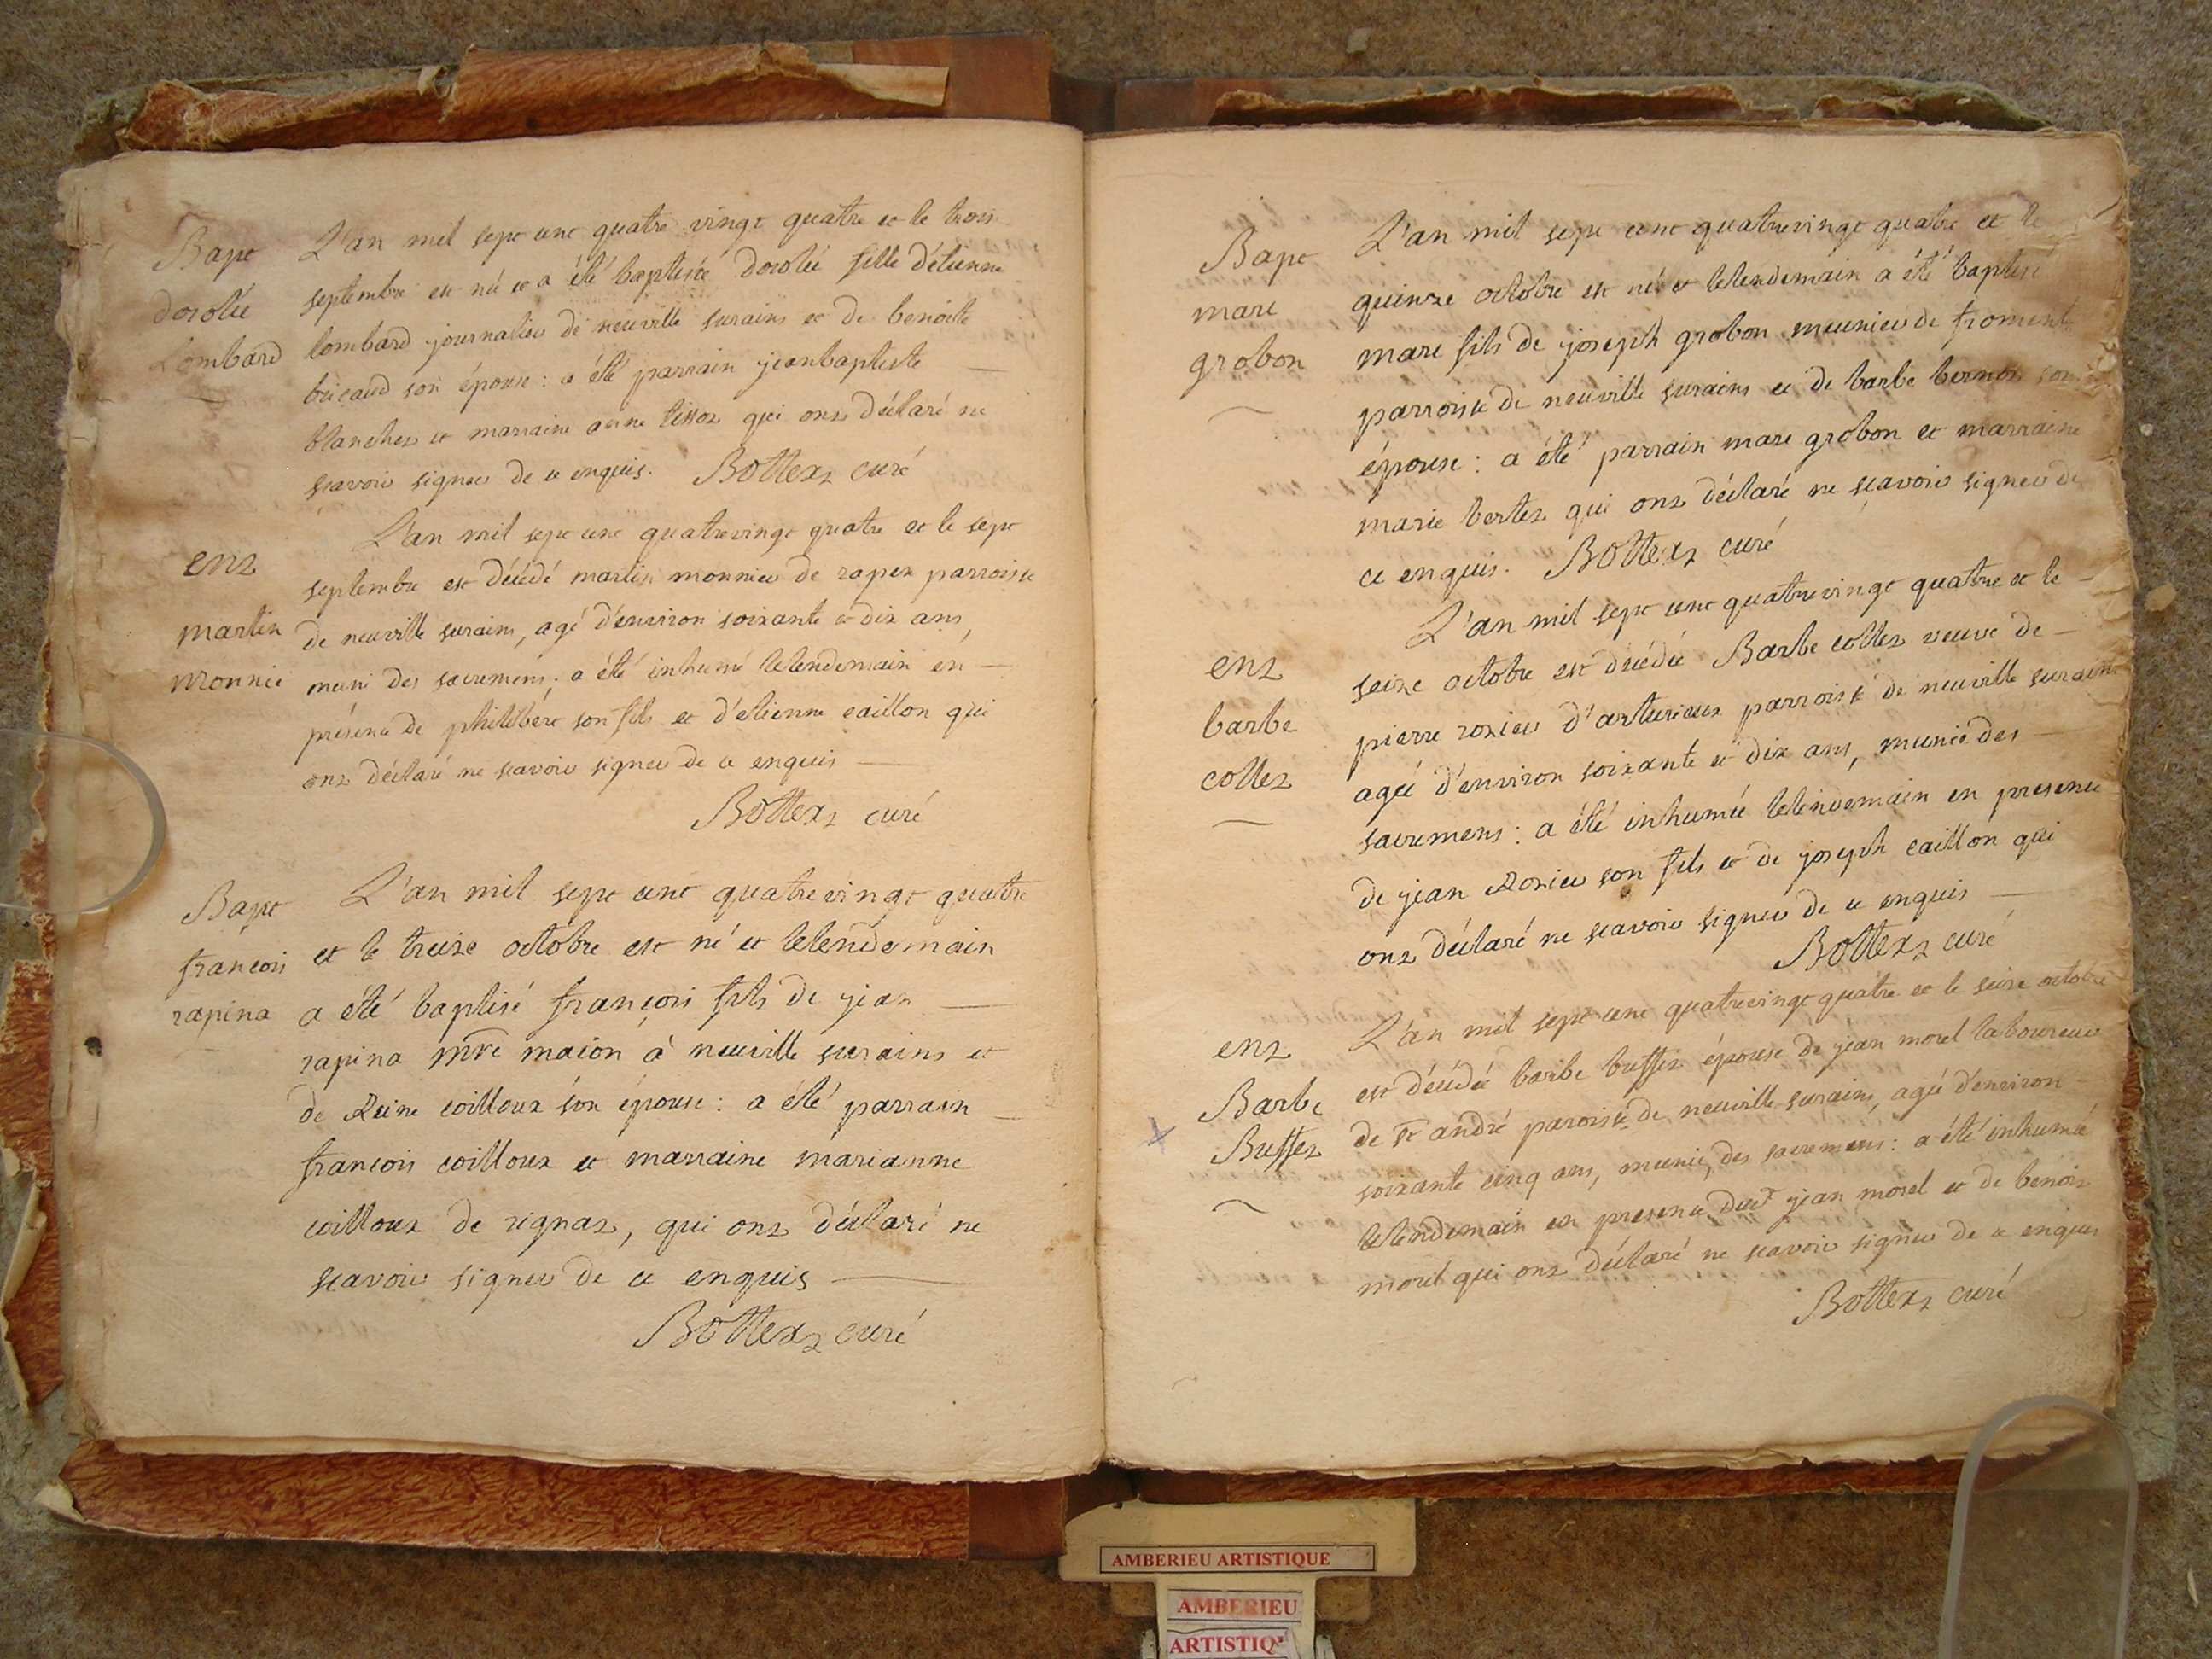 Bapt
dorotée
Lombard
L'an mil sept cent quatre vingt quatre et le trois
septembre est née et a été baptisée dorotée fille d'étienne
lombard journalier de neuville surains et de benoite
bricaud son épouse : a été parrain jeanbaptiste
blanchet et marraine anne tissot qui ont déclaré ne
scavoir signer de ce enquis. Bottex curé
ent
martin
monnié
L'an mil sept cent quatrevingt quatre et le sept
septembre est décédé martin monnier de rapet parroisse
de neuville surains, agé d'environ soixante et dix ans,
muni des sacremens ; a été inhumé lelendemain en
présence de philibert son fils et d'etienne caillon qui
ont déclaré ne scavoir signer de ce enquis
Bottex curé
Bapt
francois
rapina
L'an mil sept cent quatrevingt quatre
et le treize octobre est né et lelendemain
a été baptisé françois fils de jean
rapina mre macon à neuville surains et
de Reine coilloux son épouse : a été parrain
francois coilloux et marraine marianne
coilloux de rignat, qui ont déclaré ne
scavoir signer de ce enquis
Bottex curé
Bapt
marc
grobon
L'an mil sept cent quatrevingt quatre et le
quinze octobre est né et lelendemain a été baptisé
marc fils de joseph grobon meunier de froment
parroisse de neuville surains et de barbe bernos son
épouse : a été parrain marc grobon et marraine
marie bertet qui ont déclaré ne scavoir signer de
ce enquis. Bottex curé
ent
barbe
collet
L'an mil sept cent quatrevingt quatre et le
seize octobre est décédée Barbe collet veuve de
pierre rosier d'arturieux parroisse de neuville surains
agée d'environ soixante et dix ans, munie des
sacremens : a été inhumée lelendemain en presence
de jean Rosier son fils et de joseph caillon qui
ont déclaré ne scavoir signer de ce enquis
Bottex curé
ent
Barbe
Buffet
L'an mil sept cent quatrevingt quatre et le seize octobre
est décédée barbe buffet épouse de jean morel laboureur
de st andré paroisse de neuville surains, agée d'environ
soixante cinq ans, munie des sacremens : a été inhumée
lelendemain en presence dudt jean morel et de benoit
morel qui ont déclaré ne scavoir signer de ce enquis
Bottex curé
AMBERIEU ARTISTIQUE
AMBERIEU
ARTISTIQ